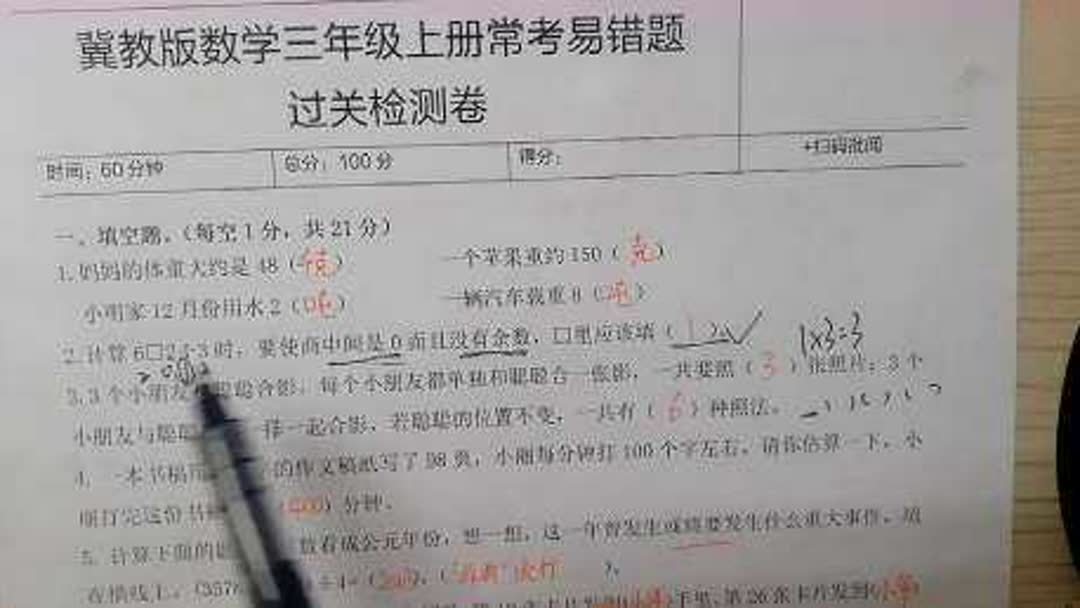 冀教版数学三年级上册常考易错题
过关检测卷
时间：60分钟 总分：100分 得分： 扫码批阅
一、填空题。（每空1分，共21分）
1.妈妈的体重大约是48（ ） 一个苹果重约150（克）
小明家12月份用水2（吨） 一辆汽车载重8（吨）
2.计算6□2÷3时，要使商中间是0而且没有余数，□里应该填（ 1×3=3
3.3个小朋友 聪聪合影，每个小朋友都单独和聪聪合一张影，一共要照（3）张照片；3个
小朋友与聪聪 一排一起合影，若聪聪的位置不变，一共有（6）种照法。
4. 一本书稿用 的作文稿纸写了98页，小丽每分钟打100个字左右。请你估算一下，小
丽打完这份书稿 （400）分钟。
5. 计算下面的 数看成公元年份，想一想，这一年曾发生或将要发生什么重大事件。填
在横线上。(357 ÷4= ），（
手里，第26张卡片发到（